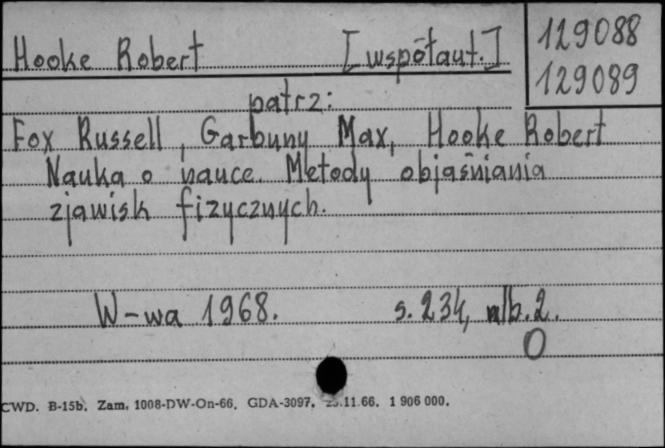 Hooke Robert [współaut.]
129088
129089
patrz:
Fox Russell, Garbuny Max, Hooke Robert
Nauka o nauce. Metody objaśniania
zjawisk fizycznych.
W-wa 1968. s. 234, nlb. 2.
O
CWD. B-15b. Zam. 1008-DW-On-66. GDA-3097. 11.66. 1 906 000.